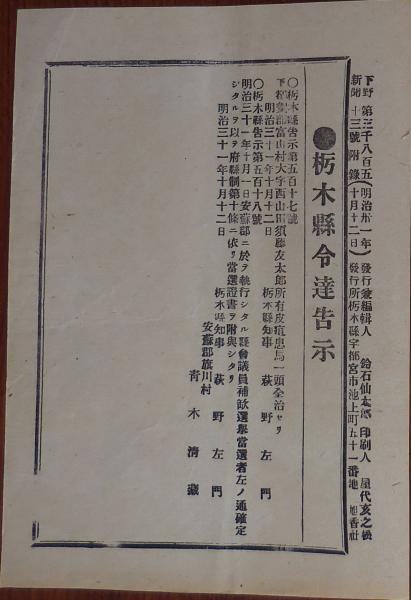 下野新聞 第三千八百五十三號附錄(明治卅一年十月十二日) 發行兼編輯人 鈴石仙太郎 印刷人 屋代亥之松 發行所栃木縣宇都宮市池上町五十一番地 旭香社
●栃木縣令達告示
○栃木縣告示第五百十七號
下都賀郡富山村大字西山田須藤友太郎所有皮疽患馬一頭全治セリ
明治三十一年十月十二日 栃木縣知事 萩野左門
○栃木縣告示第五百十八號
明治三十一年十月一日安蘇郡ニ於テ執行シタル縣會議員補欠選擧當選者左ノ通確定
シタルヲ以テ府縣制第十條ニ依リ當選證書ヲ附與シタリ
明治三十一年十月十二日 栃木縣知事 萩野左門
安蘇郡旗川村
青木清藏